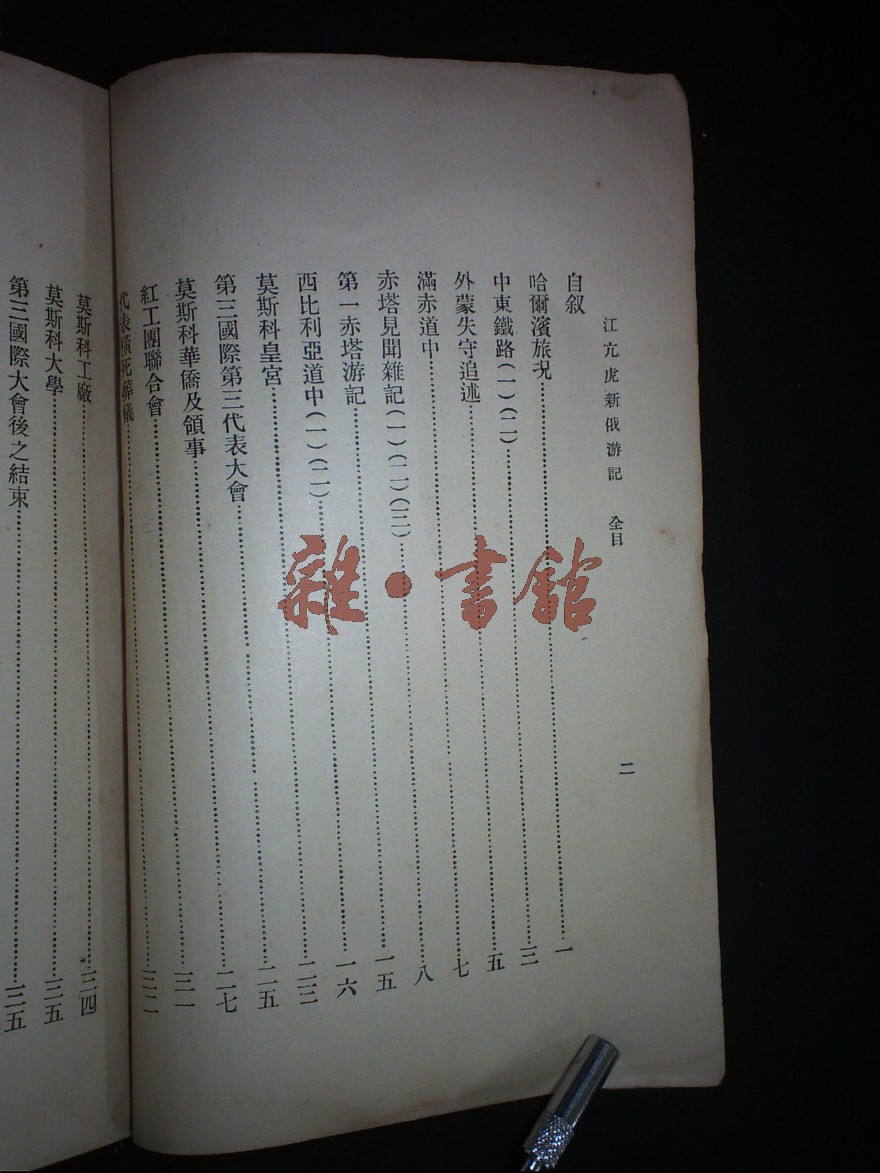 江亢虎新俄游記 全目 二
自叙……一
哈爾濱旅況……三
中東鐵路(一)(二)……五
外蒙失守追述……七
滿赤道中……八
赤塔見聞雜記(一)(二)(三)……一五
第一赤塔游記……一六
西比利亞道中(一)(二)……二三
莫斯科皇宮……二五
第三國際第三代表大會……二七
莫斯科華僑及領事……三一
紅工團聯合會……三二
代表橫死葬儀……
莫斯科工廠……三四
莫斯科大學……三五
第三國際大會後之結束……三五
雜·書館